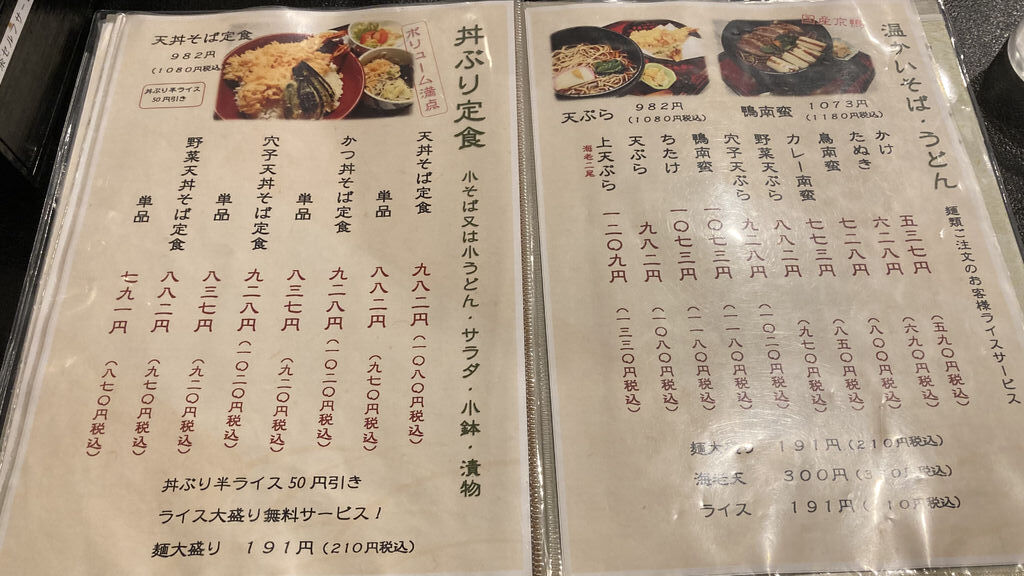 丼ぶり定食 小そば又は小うどん・サラダ・小鉢・漬物
ボリューム満点
天丼そば定食
982円
(1080円税込)
丼ぶり半ライス
50円引き
天丼そば定食 九八二円 (一〇八〇円税込)
単品 八八二円 (九七〇円税込)
かつ丼そば定食 九二八円 (一〇二〇円税込)
単品 八三七円 (九二〇円税込)
穴子天丼そば定食 九二八円 (一〇二〇円税込)
単品 八三七円 (九二〇円税込)
野菜天丼そば定食 八八二円 (九七〇円税込)
単品 七九一円 (八七〇円税込)
丼ぶり半ライス50円引き
ライス大盛り無料サービス!
麺大盛り 191円(210円税込)
温かいそば・うどん 麺類ご注文のお客様ライスサービス
国産京鴨
天ぷら 982円 (1080円税込)
鴨南蛮 1073円 (1180円税込)
かけ 五三七円 (五九〇円税込)
たぬき 六二八円 (六九〇円税込)
鳥南蛮 七二八円 (八〇〇円税込)
カレー南蛮 七七三円 (八五〇円税込)
野菜天ぷら 八八二円 (九七〇円税込)
穴子天ぷら 九二八円 (一〇二〇円税込)
鴨南蛮 一〇七三円 (一一八〇円税込)
ちたけ 一〇七三円 (一一八〇円税込)
天ぷら 九八二円 (一〇八〇円税込)
上天ぷら 海老二尾 一二〇九円 (一三三〇円税込)
麺大 191円(210円税込)
海老天 300円(3 0円税込)
ライス 191円( 10円税込)